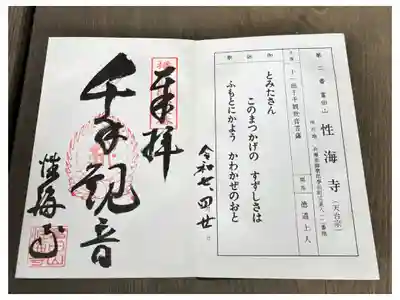 富田山 性海寺 (天台宗)
本尊 十一面千手観世音菩薩
開基 徳道上人
御詠歌
とみたさん
このまつかげの すずしさは
ふもとにかよう かわかぜのおと
令和七、四、廿
奉拝
千手観音
性海寺